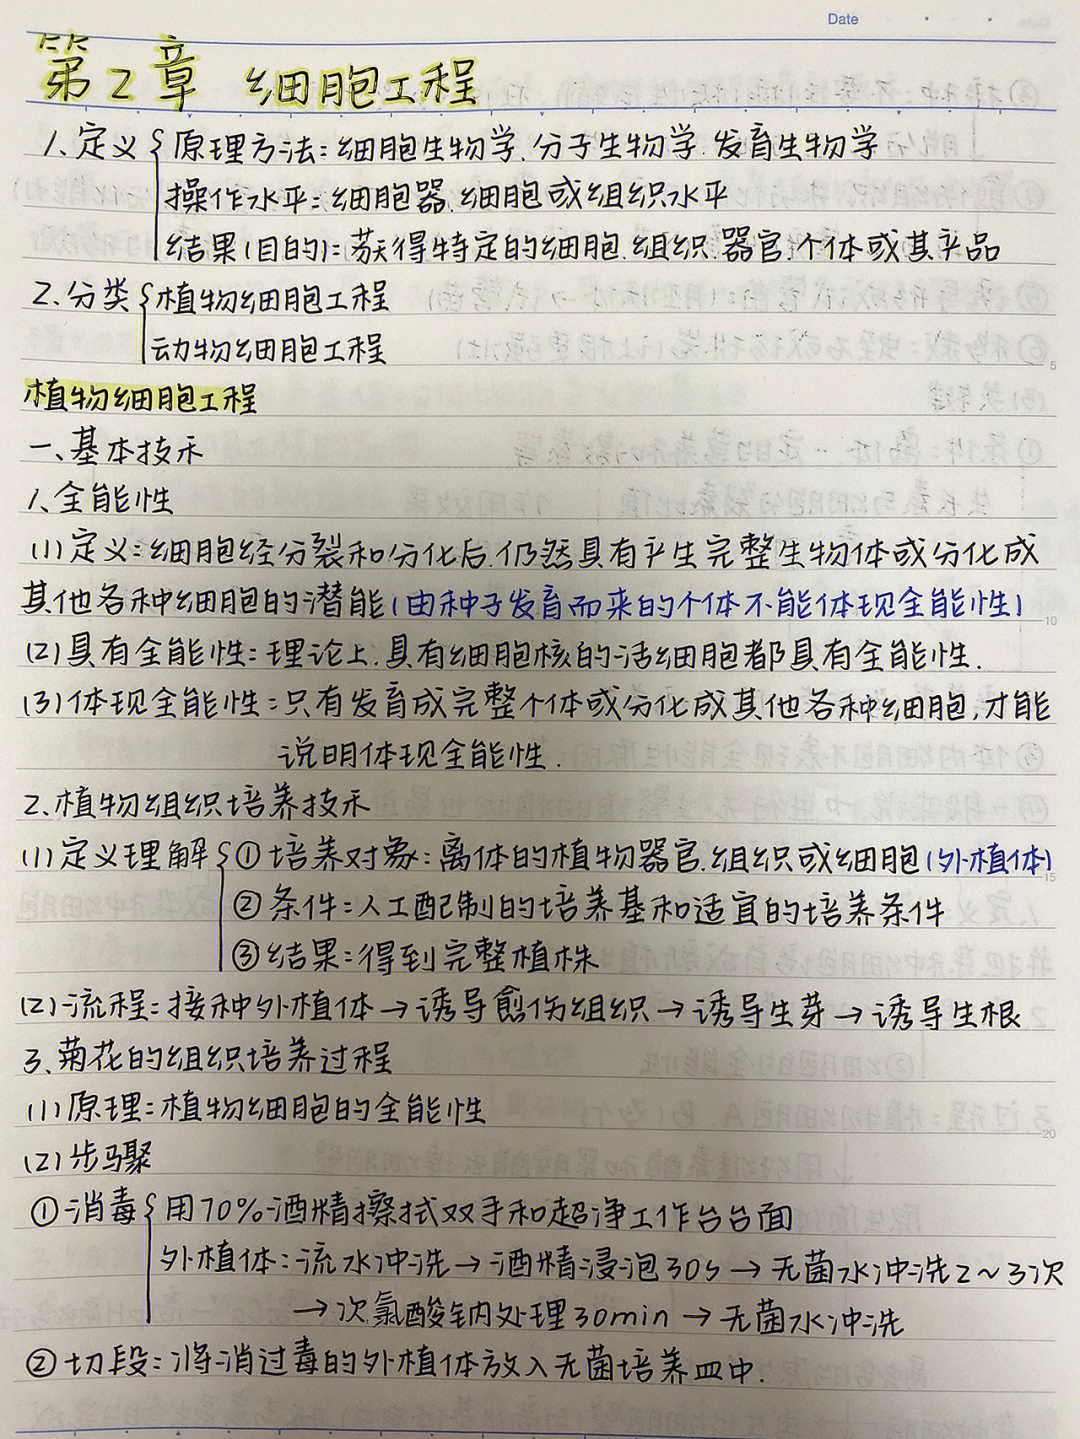 Date
第2章 细胞工程
1.定义 原理方法:细胞生物学.分子生物学.发育生物学
操作水平:细胞器.细胞或组织水平
结果(目的):获得特定的细胞.组织.器官.个体或其产品
2.分类 植物细胞工程
动物细胞工程
植物细胞工程
一、基本技术
1.全能性
(1)定义:细胞经分裂和分化后.仍然具有产生完整生物体或分化成
其他各种细胞的潜能(由种子发育而来的个体不能体现全能性)
(2)具有全能性:理论上.具有细胞核的活细胞都具有全能性.
(3)体现全能性:只有发育成完整个体或分化成其他各种细胞,才能
说明体现全能性.
2.植物组织培养技术
(1)定义理解 ①培养对象:离体的植物器官.组织或细胞(外植体)
②条件:人工配制的培养基和适宜的培养条件
③结果:得到完整植株
(2)流程:接种外植体→诱导愈伤组织→诱导生芽→诱导生根
3.菊花的组织培养过程
(1)原理:植物细胞的全能性
(2)步骤
①消毒 用70%酒精擦拭双手和超净工作台台面
外植体:流水冲洗→酒精浸泡30s→无菌水冲洗2~3次
→次氯酸钠处理30min→无菌水冲洗
②切段:将消过毒的外植体放入无菌培养皿中.
5
10
15
20